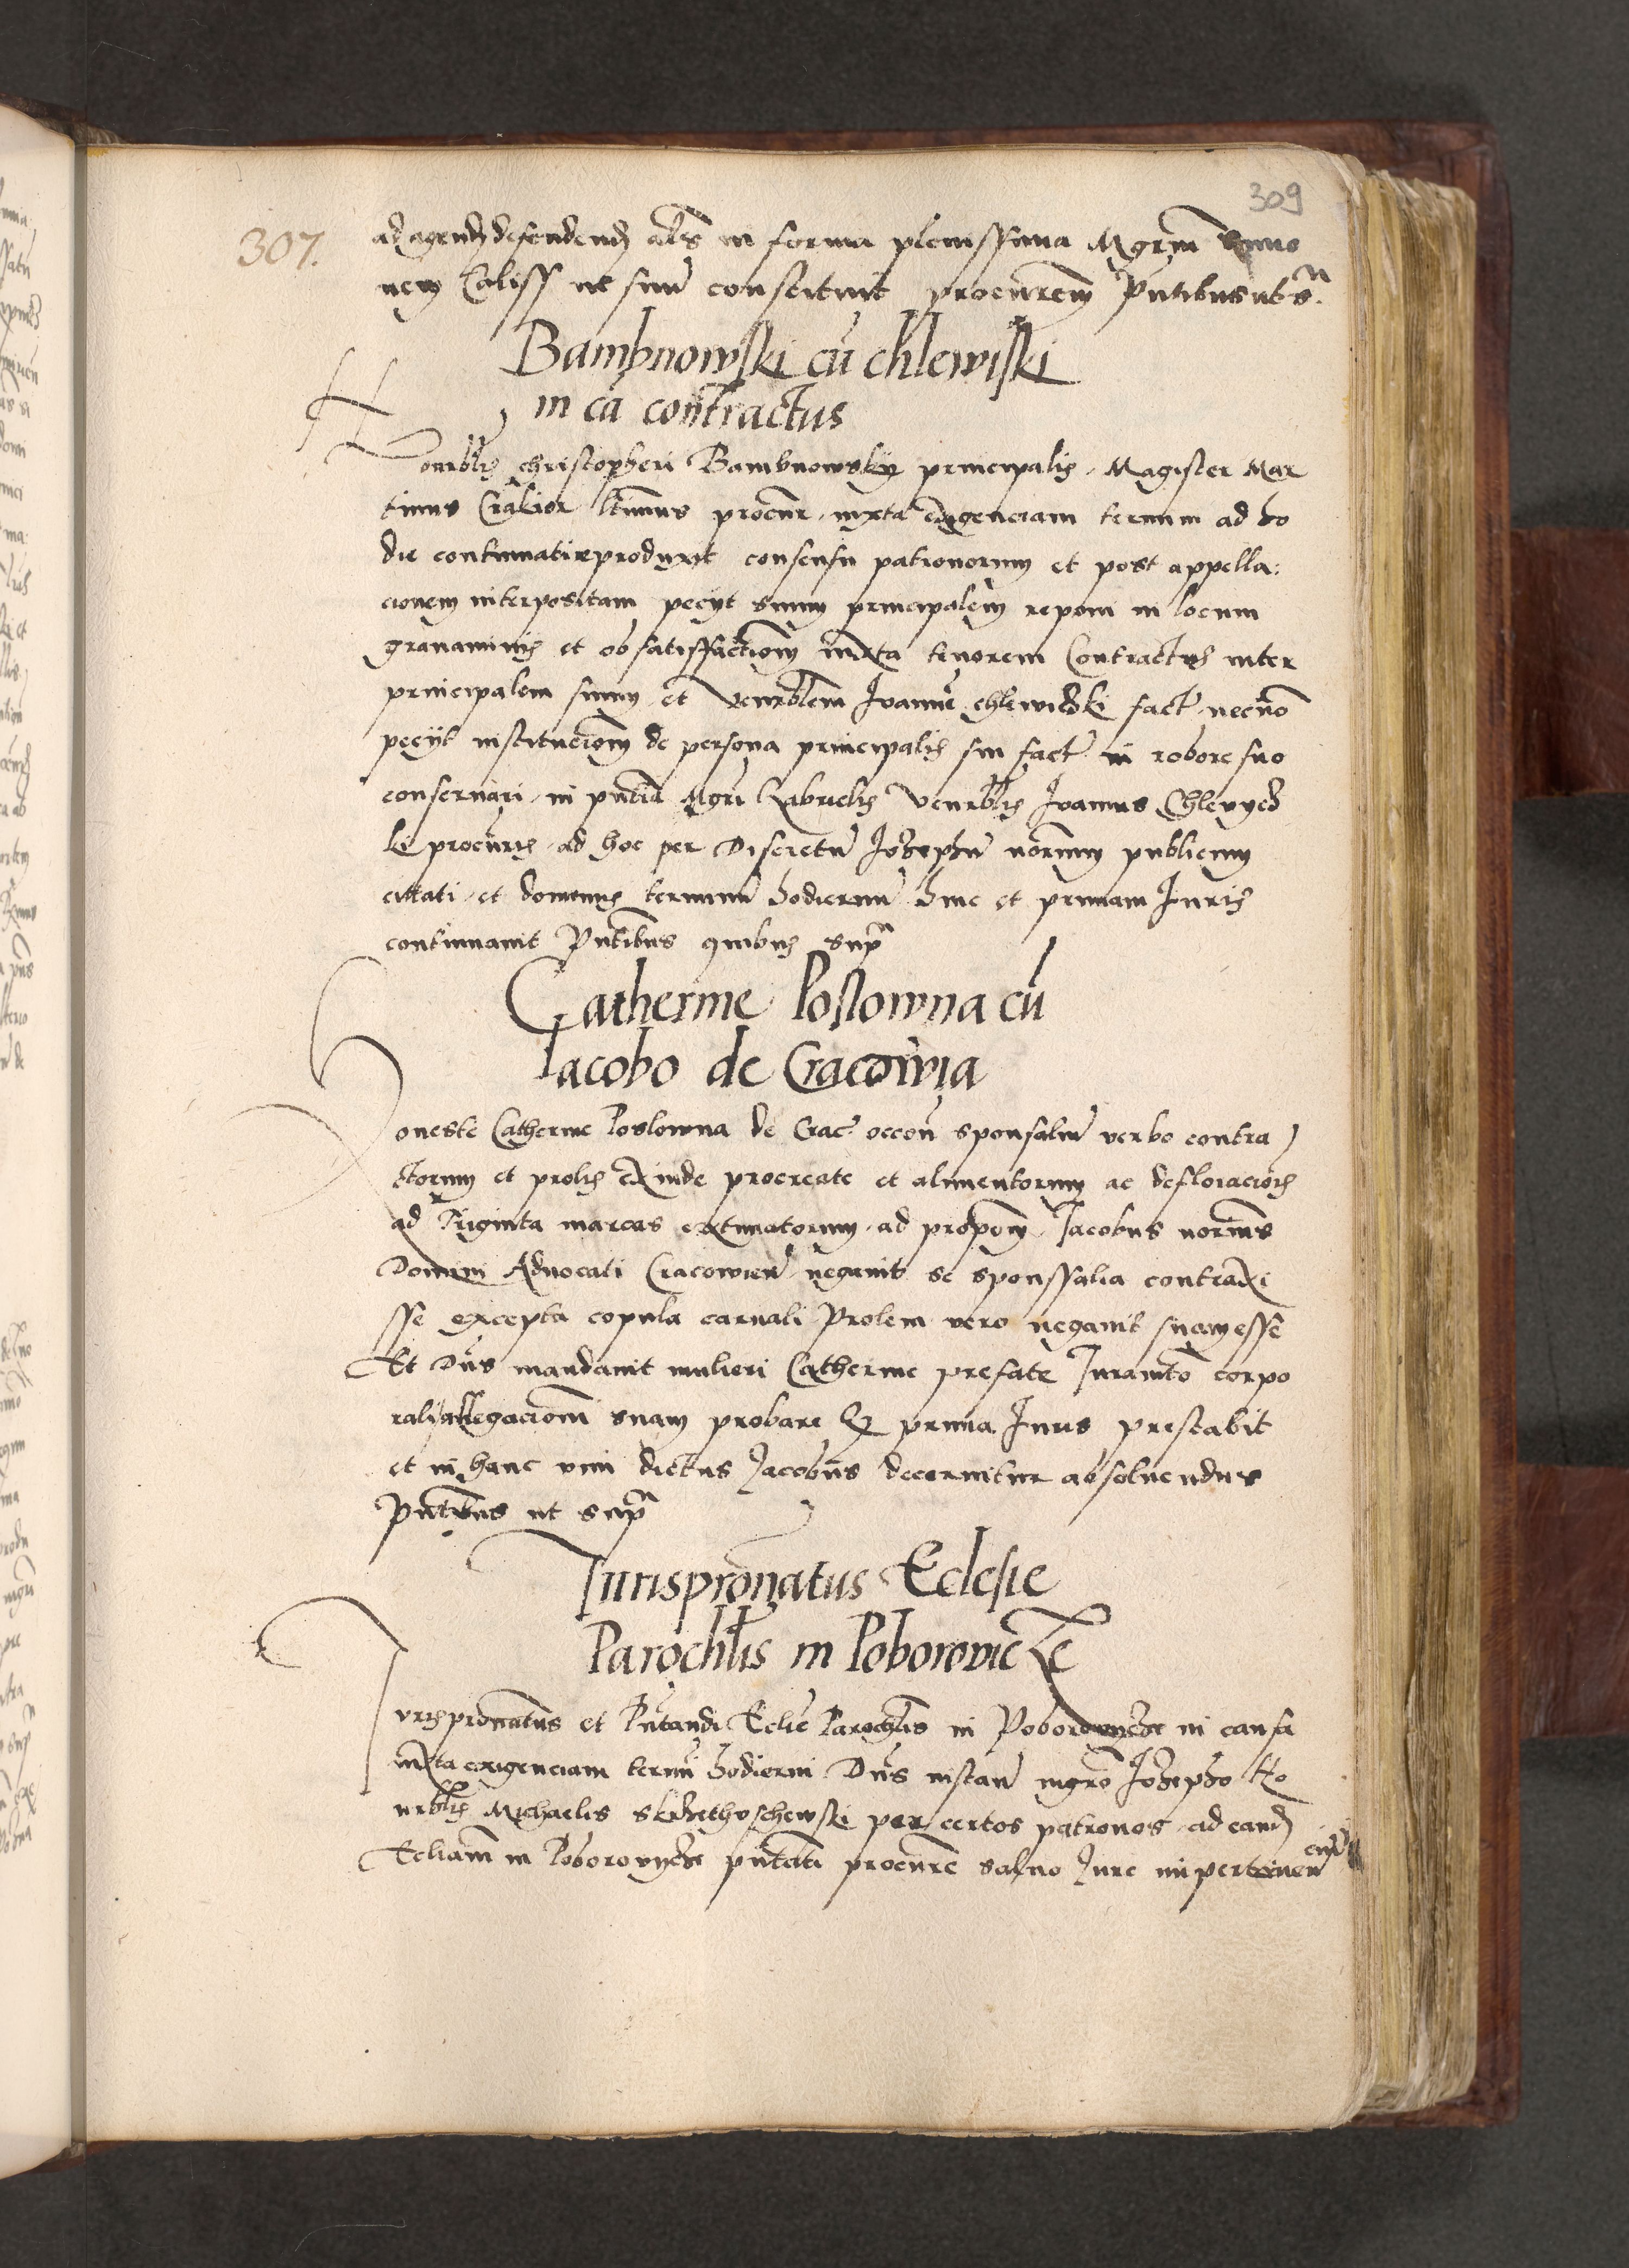 309
307.
ad agend defendend als in forma plenissima Mgrm
nem Caliss ut suu constituit procurem Pntibus ut s.
Bambnowski cu chlewiski
in ca contractus
Honrblis Christopheri Bambnowsky principalis Magister Mar
tinus procur iuxta exigenciam termini ad ho
die continuati reproduxit consensu patronorum et post appella:
cionem interpositam peciit suum principalem reponi in locum
gravaminis et ob satisfactiom iuxta tenorem Contractus inter
principalem suum et Venrblem Joannem chlewiski fact necno
peciit institucionem de persona principalis sui fact in robore suo
conservari in pntia Mgri Gabrielis Venrblis Joannis Chlewys
ki procuris ad hoc per Discretu Josephu norium publicum
citati et dominus terminu hodiernu hinc et primam Juris
continuavit Pntibus quibus supra
Catherine Poslowna cu
Jacobo de Cracowia
Honeste Catherine Poslowna de Crac occon sponsaliu verbo contra
ctorum et prolis exinde procreate et alimentorum ac defloracionis
ad Triginta marcas extimatorum ad propom Jacobus norius
Domini Advocati Cracowien negavit se sponssalia contraxi
sse excepta copula carnali Prolem vero negavit suam esse
Et Dns mandavit mulieri Catherine prefate Juramto corpo
rali allegacionem suam probare Q prima Juris prestabit
et in hanc vim dictus Jacobus decernitur absolvendus
Pntibus ut supra
Jurispronatus Eclesie
Parochlis in Poborovicze
Jurispronatus et Pntandi Eclie Parochlis in Poborowycze in causa
iuxta exigenciam termi hodierni Dns instan mgro Josepho Ho
nrblis Michaelis per certos patronos ad eand
Ecliam in Poborovycze pntati procure salvo Jure impertinen